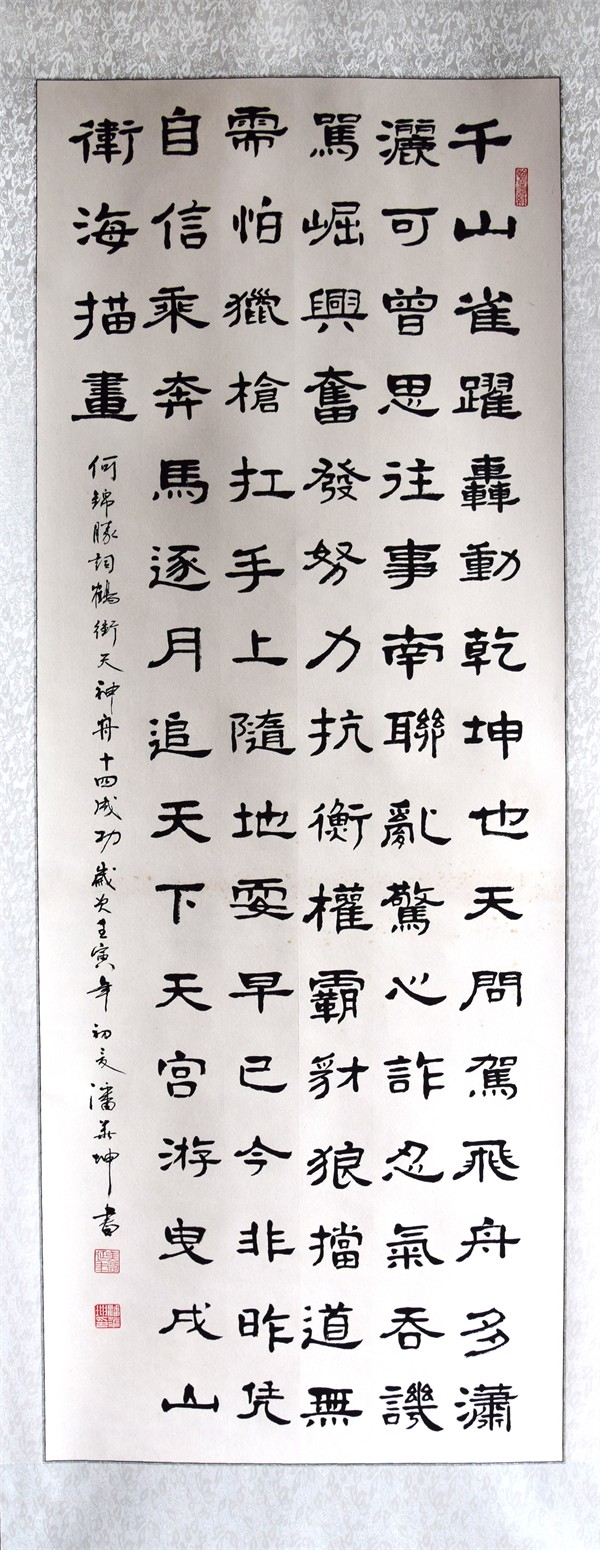 千山雀躍轟動乾坤也天問駕飛舟多瀟
灑可曾思往事南聯亂驚心詐忍氣吞譏
罵崛興奮發努力抗衡權霸豺狼擋道無
需怕獵槍扛手上隨地耍早已今非昨凭
自信乘奔馬逐月追天下天宮游曳戍山
衛海描畫
何錦勝詞鶴衝天神舟十四成功歲次壬寅年初夏潘業坤書